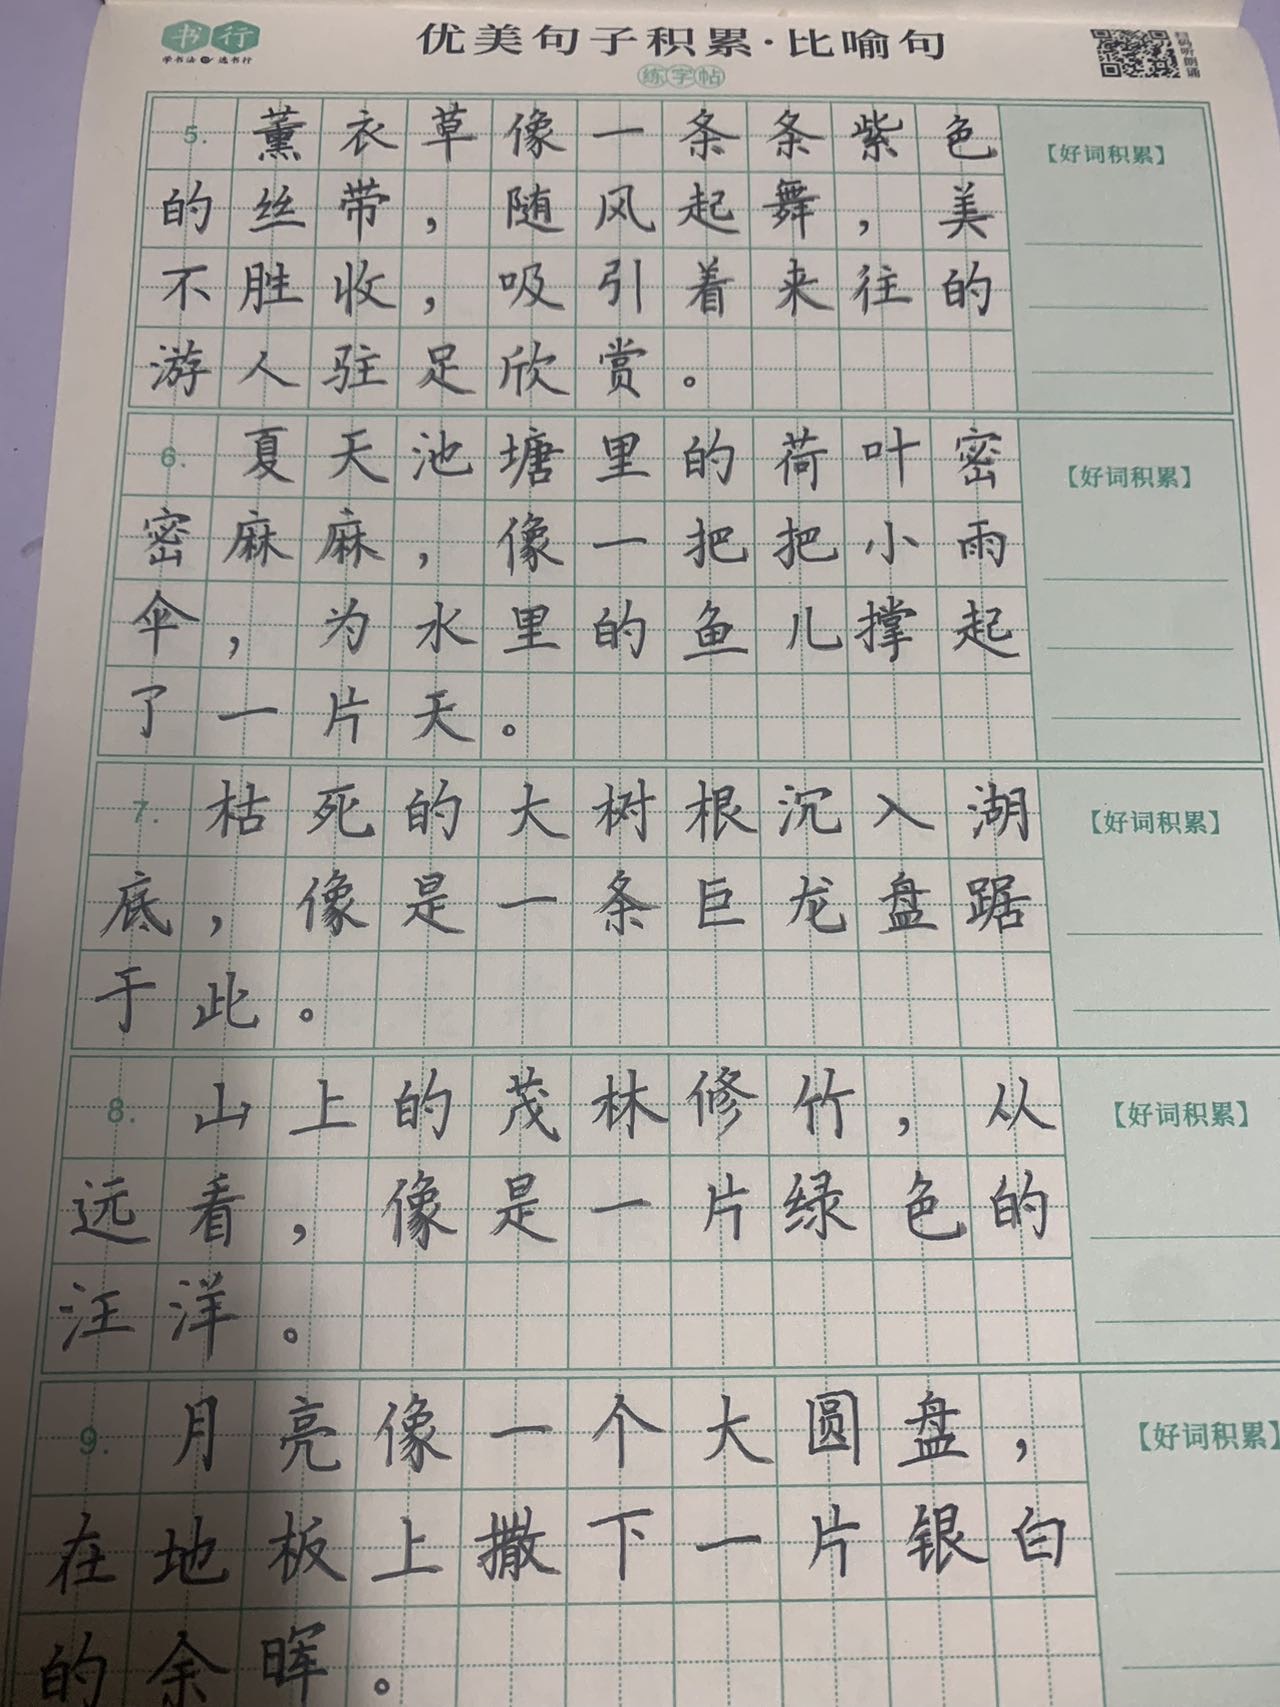 书行
学书法 选书行
优美句子积累·比喻句
练字帖
扫码听朗诵
5. 薰衣草像一条条紫色
的丝带，随风起舞，美
不胜收，吸引着来往的
游人驻足欣赏。
【好词积累】
6. 夏天池塘里的荷叶密
密麻麻，像一把把小雨
伞，为水里的鱼儿撑起
了一片天。
【好词积累】
7. 枯死的大树根沉入湖
底，像是一条巨龙盘踞
于此。
【好词积累】
8. 山上的茂林修竹，从
远看，像是一片绿色的
汪洋。
【好词积累】
9. 月亮像一个大圆盘，
在地板上撒下一片银白
的余晖。
【好词积累】